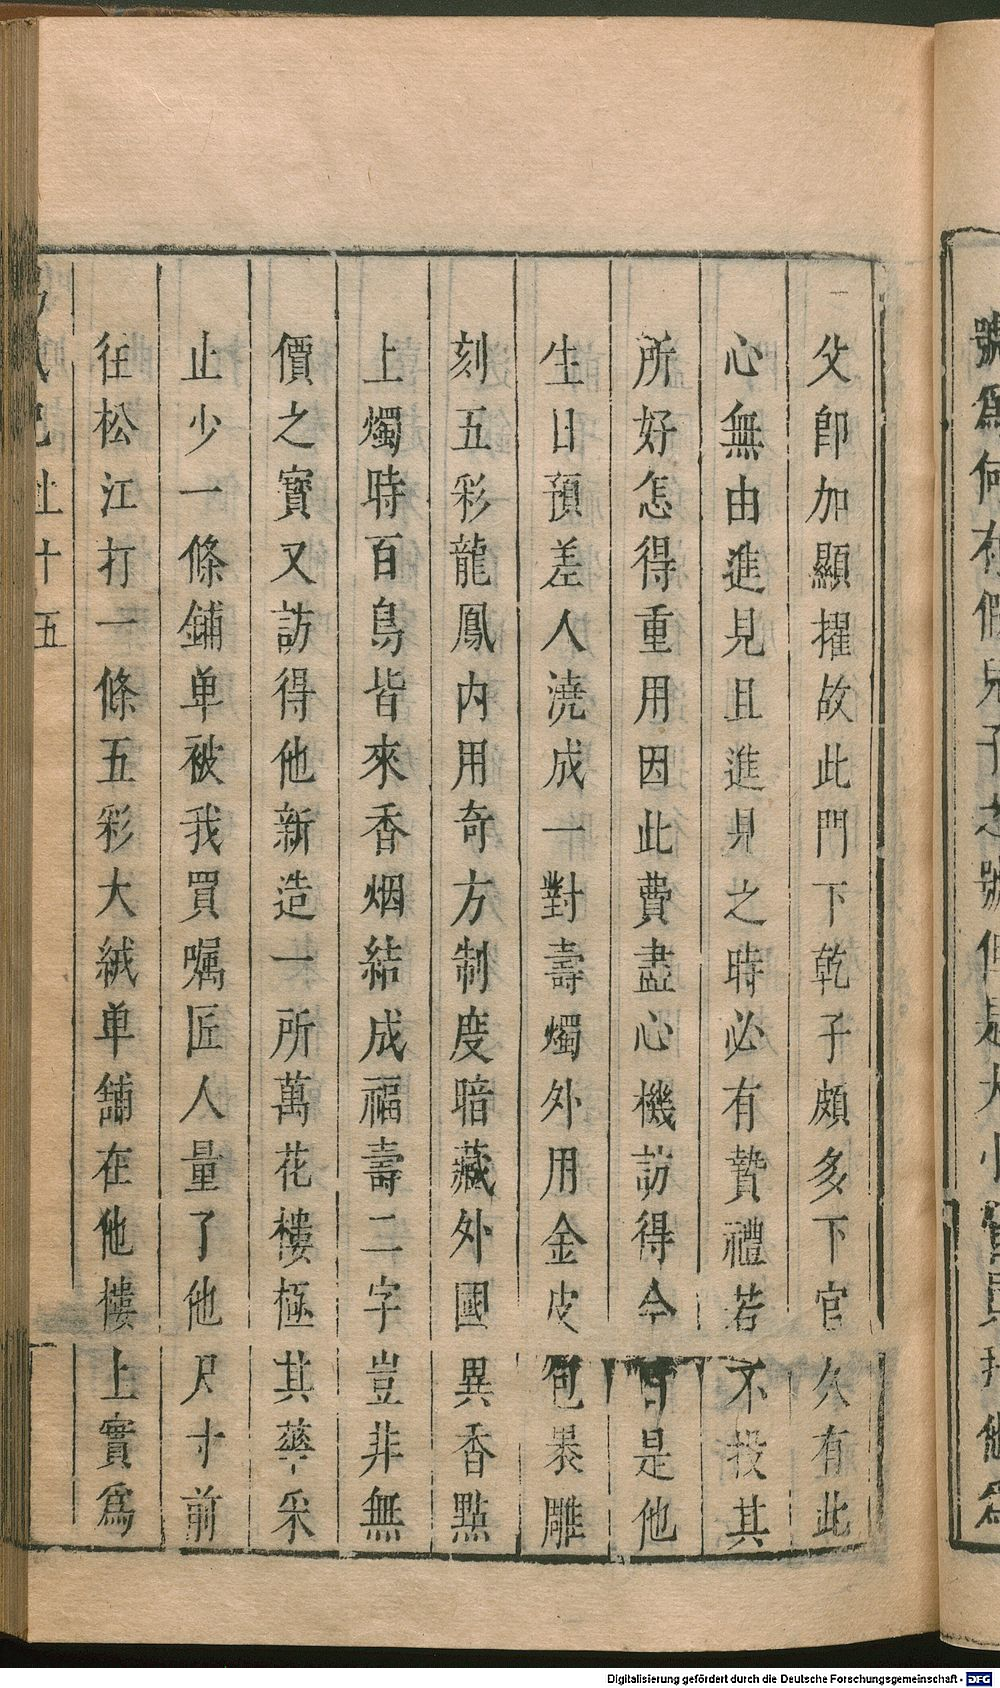 號爲何有假兒子之號
父卽加顯擢故此門下乾子頗多下官久有此
心無由進見且進見之時必有贄禮若不投其
所好怎得重用因此費盡心機訪得今日是他
生日預差人澆成一對壽燭外用金皮包裹雕
刻五彩龍鳳內用奇方制度暗藏外國異香點
上燭時百鳥皆來香烟結成福壽二字豈非無
價之寶又訪得他新造一所萬花樓極其華采
止少一條鋪单被我買嘱匠人量了他尺寸前
往松江打一條五彩大絨单舖在他樓上實爲
上十五
Digitalisierung gefördert durch die Deutsche Forschungsgemeinschaft - DFG